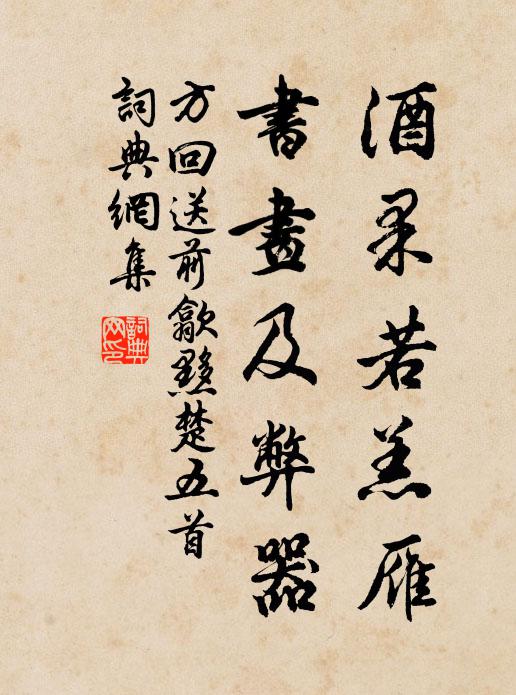 酒果若羔雁
書畫及弊器
方回送前歙黟楚五首
詞典網集
詞典网印